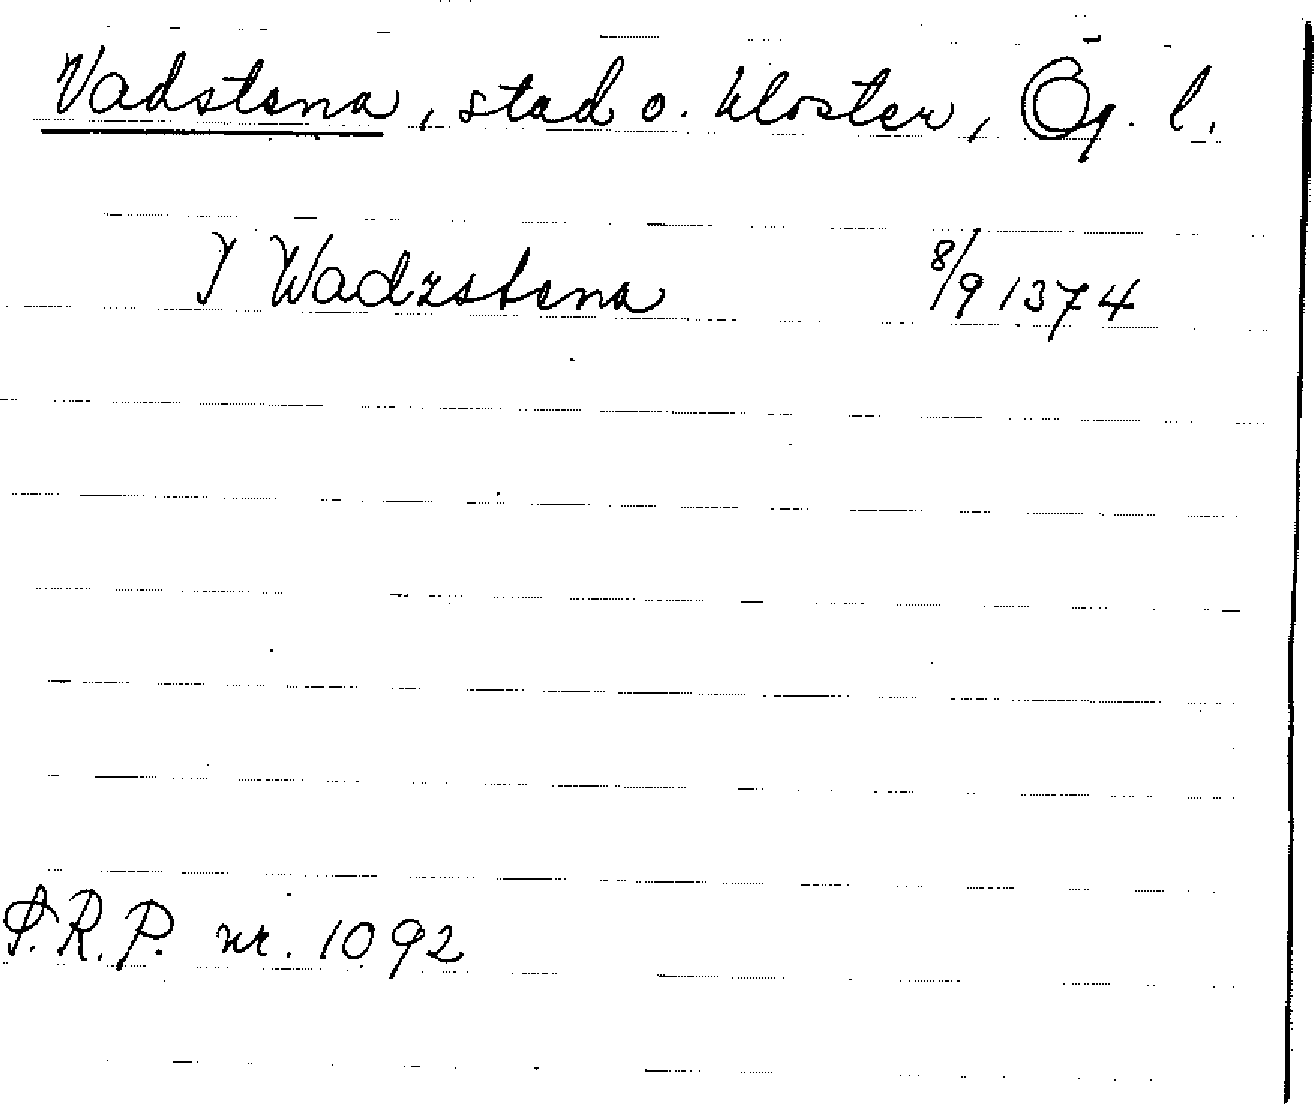 Vadstena, stad o. kloster, Ög. l.
Y Wadzstena 8/9 1374
S.R.P. nr. 1092